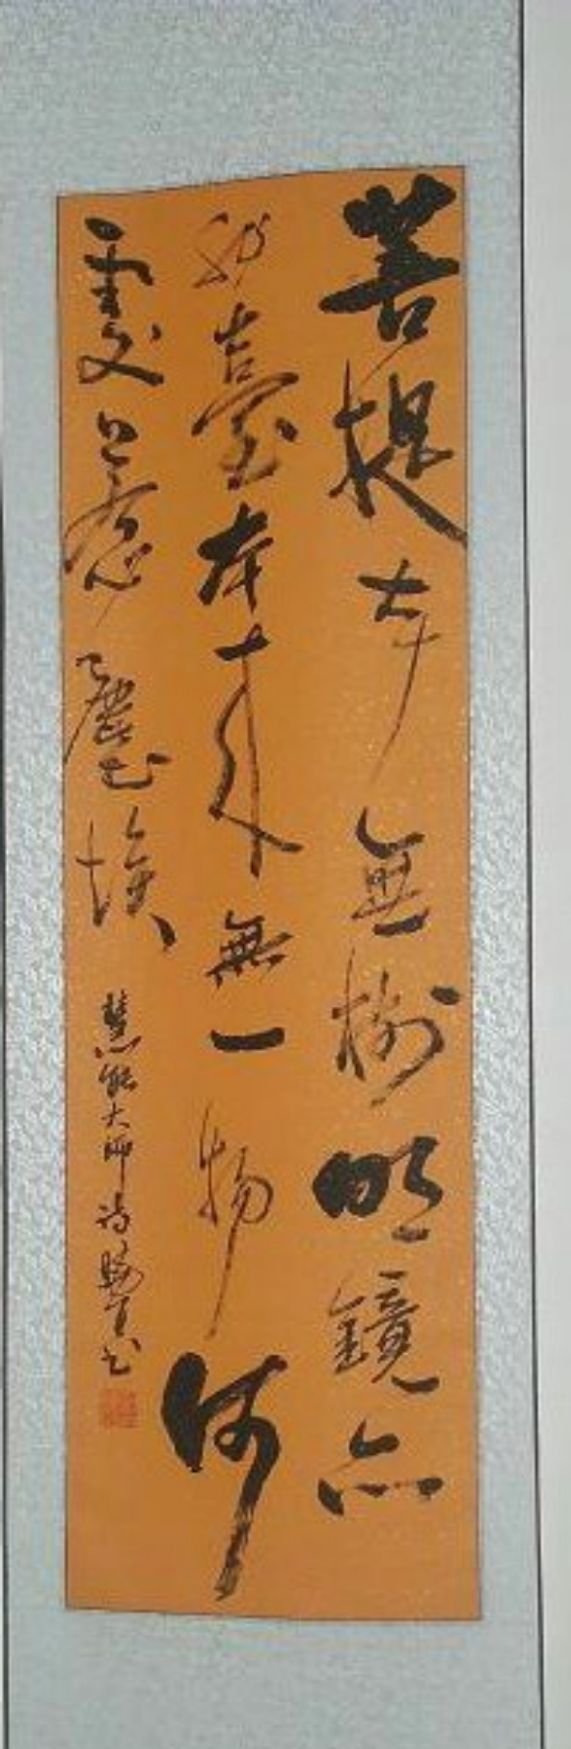 菩提本無樹明鏡亦
非臺本來無一物何
處惹塵埃
慧能大师诗